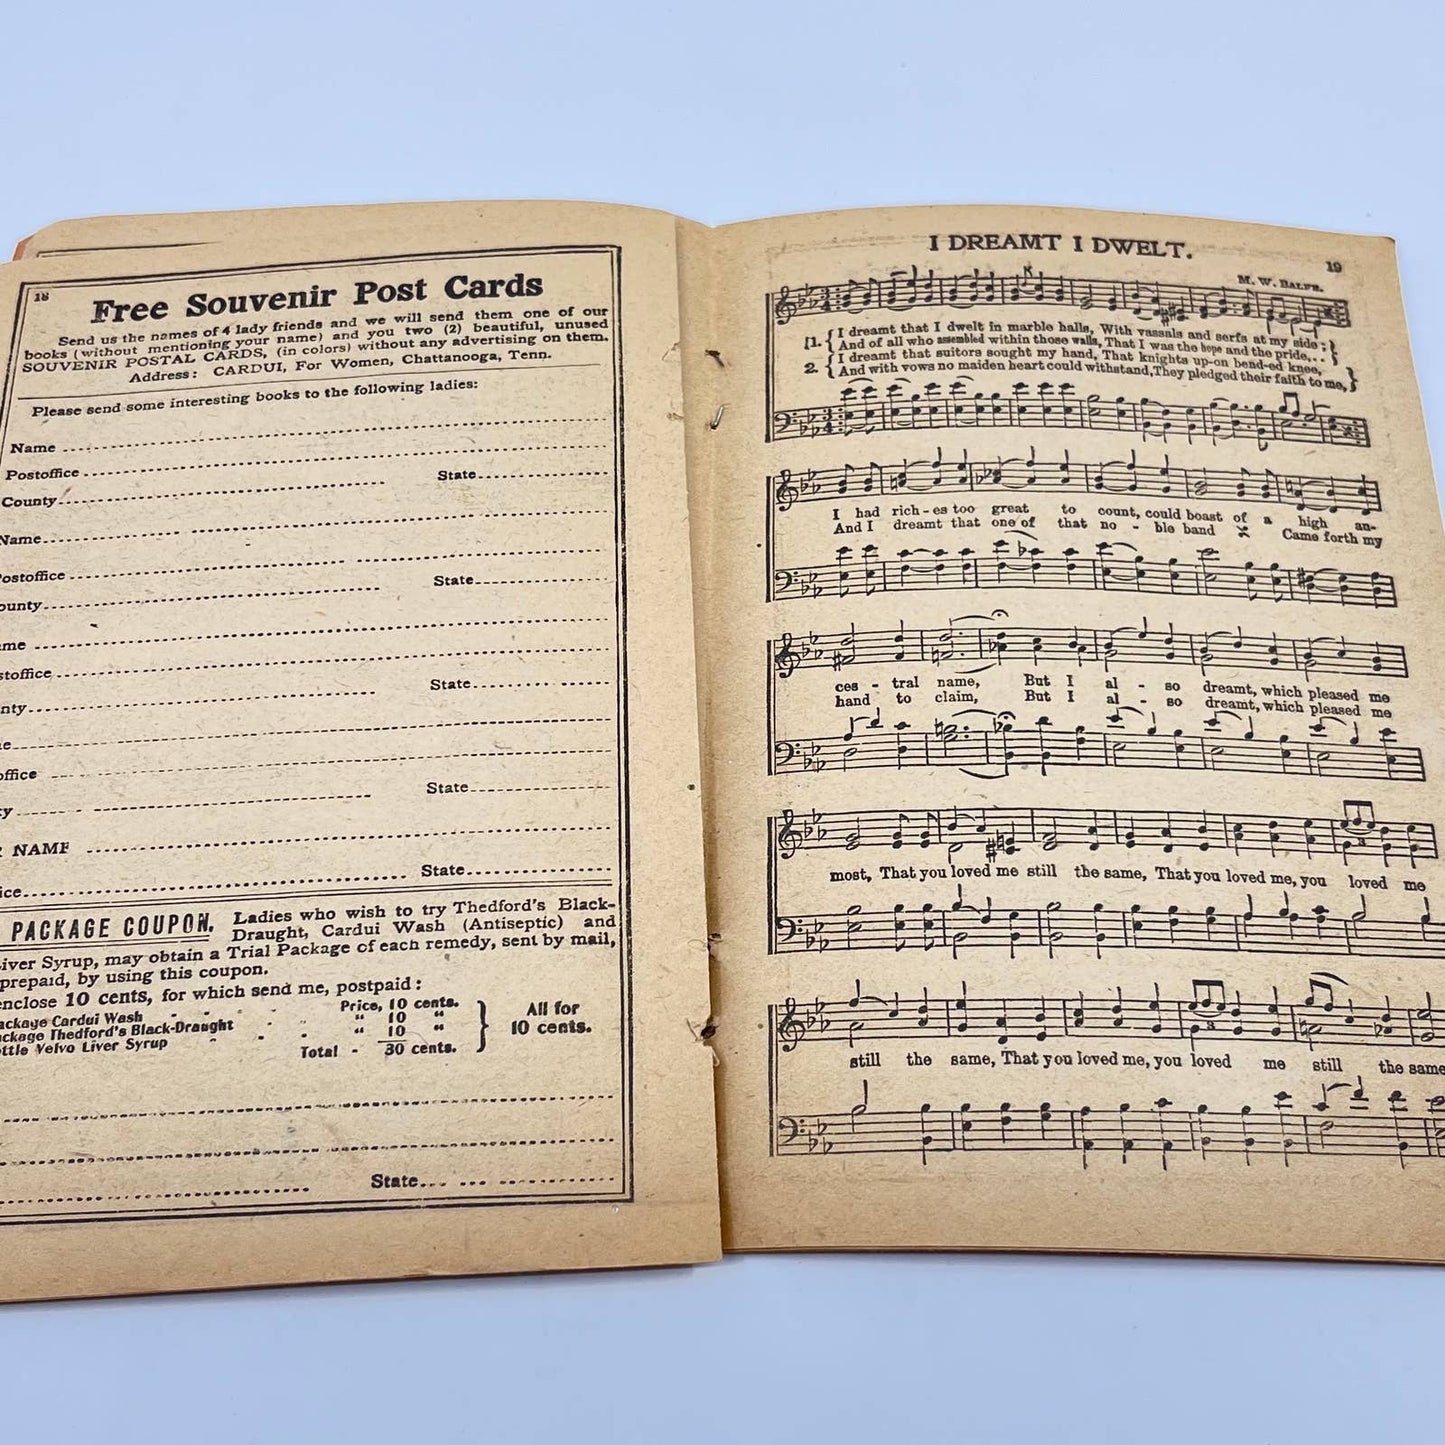 18
Free Souvenir Post Cards
Send us the names of 4 lady friends and we will send them one of our
books (without mentioning your name) and you two (2) beautiful, unused
SOUVENIR POSTAL CARDS, (in colors) without any advertising on them.
Address: CARDUI, For Women, Chattanooga, Tenn.
Please send some interesting books to the following ladies:
Name
Postoffice State
County
Name
Postoffice State
ounty
ame
stoffice State
nty
e
office State
y
R NAME
ice State
PACKAGE COUPON. Ladies who wish to try Thedford's Black-
Draught, Cardui Wash (Antiseptic) and
Liver Syrup, may obtain a Trial Package of each remedy, sent by mail,
prepaid, by using this coupon.
enclose 10 cents, for which send me, postpaid:
ackage Cardui Wash - - - Price, 10 cents.
ackage Thedford's Black-Draught - - " 10 "
ottle Velvo Liver Syrup " - - " 10 "
Total - 30 cents.
All for
10 cents.
State
I DREAMT I DWELT.
19
M. W. BALFE.
1. { I dreamt that I dwelt in marble halls, With vassals and serfs at my side; }
{ And of all who assembled within those walls, That I was the hope and the pride, . . }
2. { I dreamt that suitors sought my hand, That knights up-on bend-ed knee, }
{ And with vows no maiden heart could withstand, They pledged their faith to me, }
I had rich-es too great to count, could boast of a high an-
And I dreamt that one of that no - ble band Came forth my
ces - tral name, But I al - so dreamt, which pleased me
hand to claim, But I al - so dreamt, which pleased me
most, That you loved me still the same, That you loved me, you loved me
3
still the same, That you loved me, you loved me still the same
3